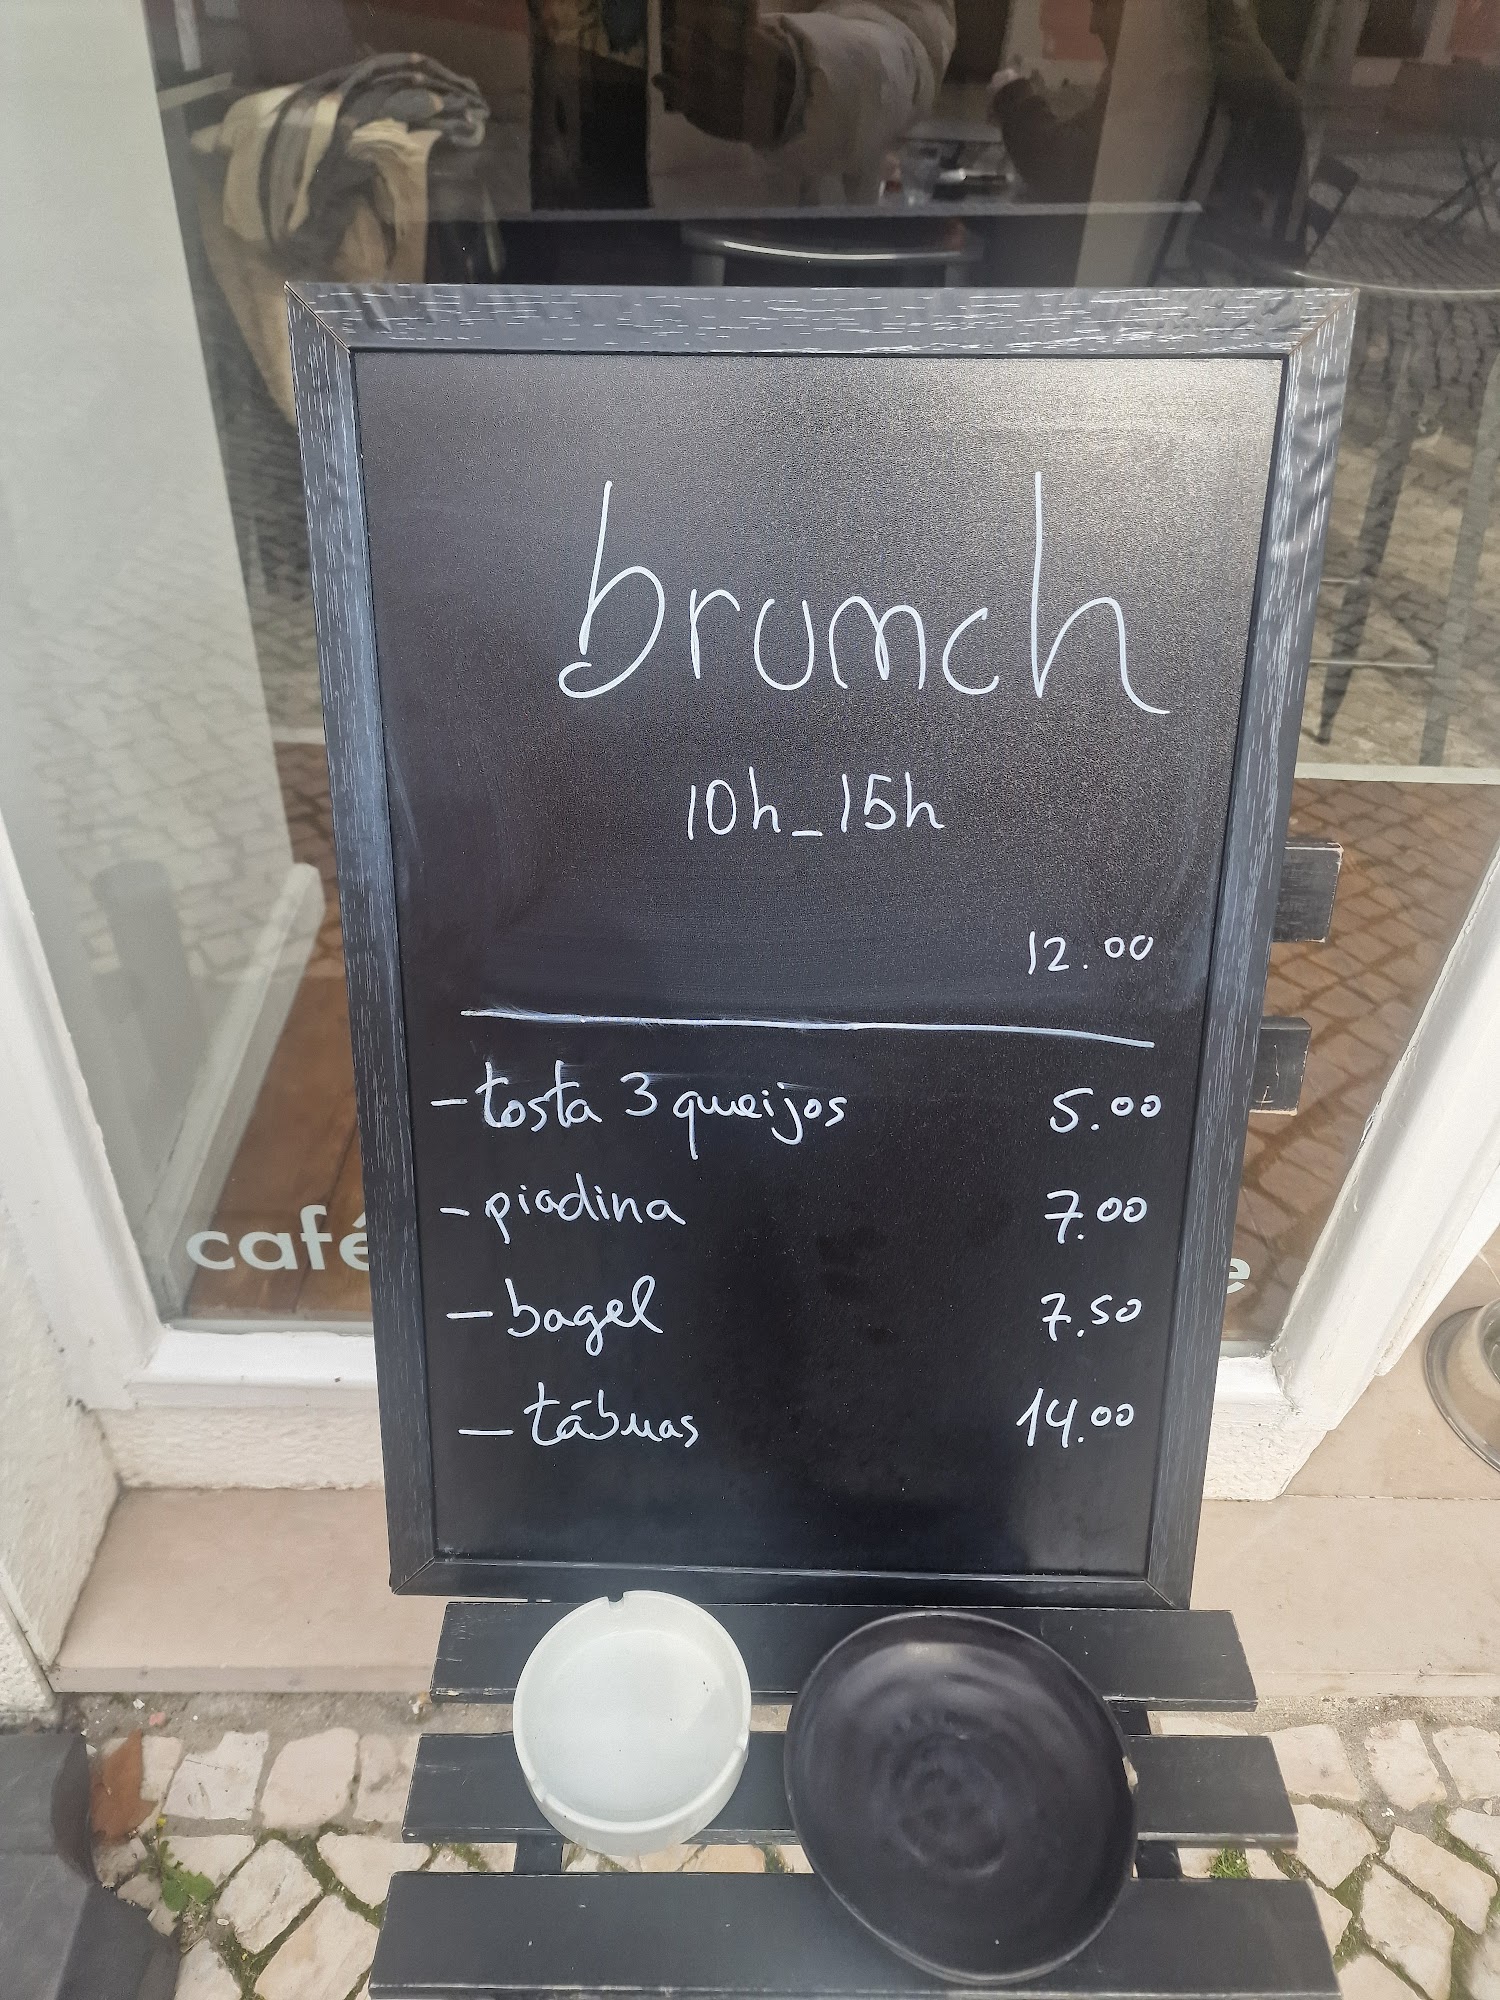 brunch
10h_15h
12.00
- tosta 3 queijos 5.00
- piadina 7.00
- bagel 7.50
- tábuas 14.00
café
e